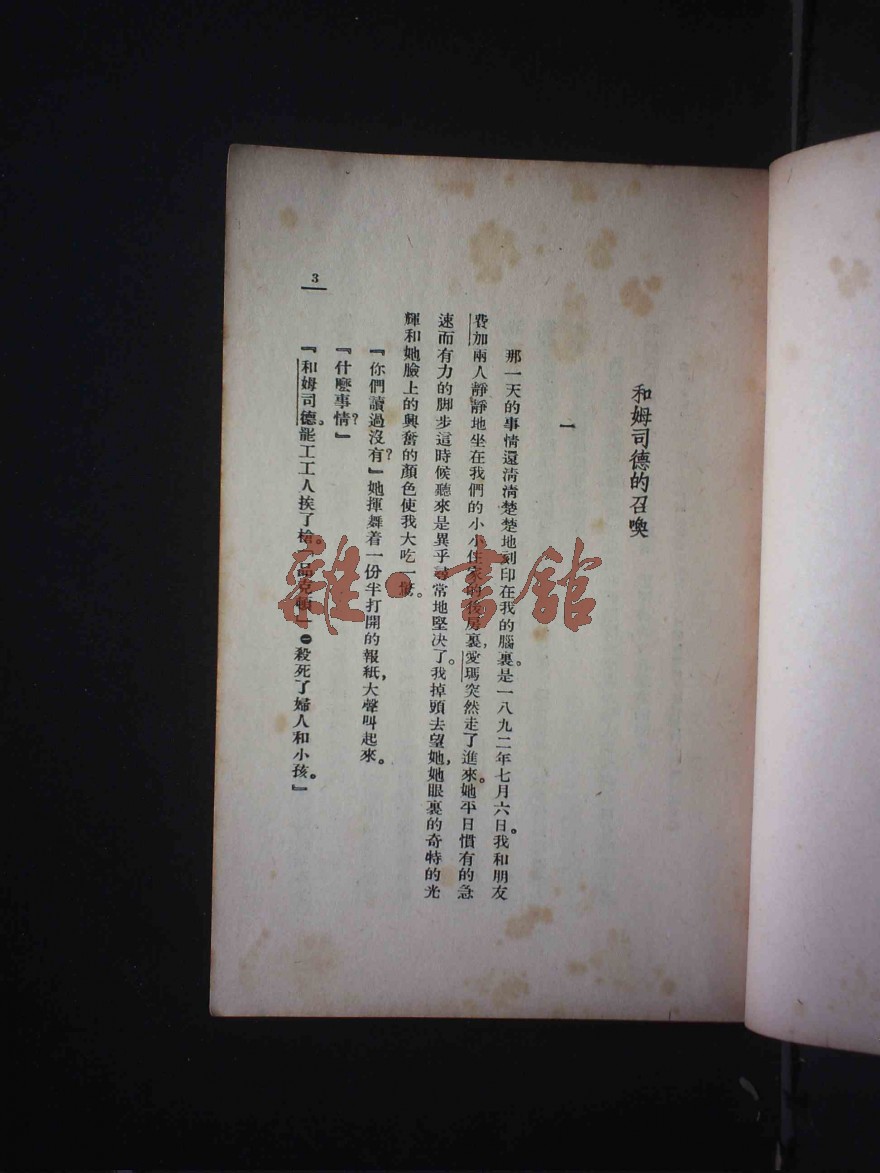 和姆司德的召喚
一
那一天的事情還清清楚楚地刻印在我的腦裏。是一八九二年七月六日。我和朋友
費加兩人靜靜地坐在我們的小小住家的後房裏，愛瑪突然走了進來。她平日慣有的急
速而有力的脚步這時候聽來是異乎尋常地堅决了。我掉頭去望她，她眼裏的奇特的光
輝和她臉上的興奮的顏色使我大吃一驚。
『你們讀過沒有？』她揮舞着一份半打開的報紙，大聲叫起來。
『什麼事情？』
『和姆司德。罷工工人挨了槍。「品克頓」㊀殺死了婦人和小孩。』
3
雜·書館